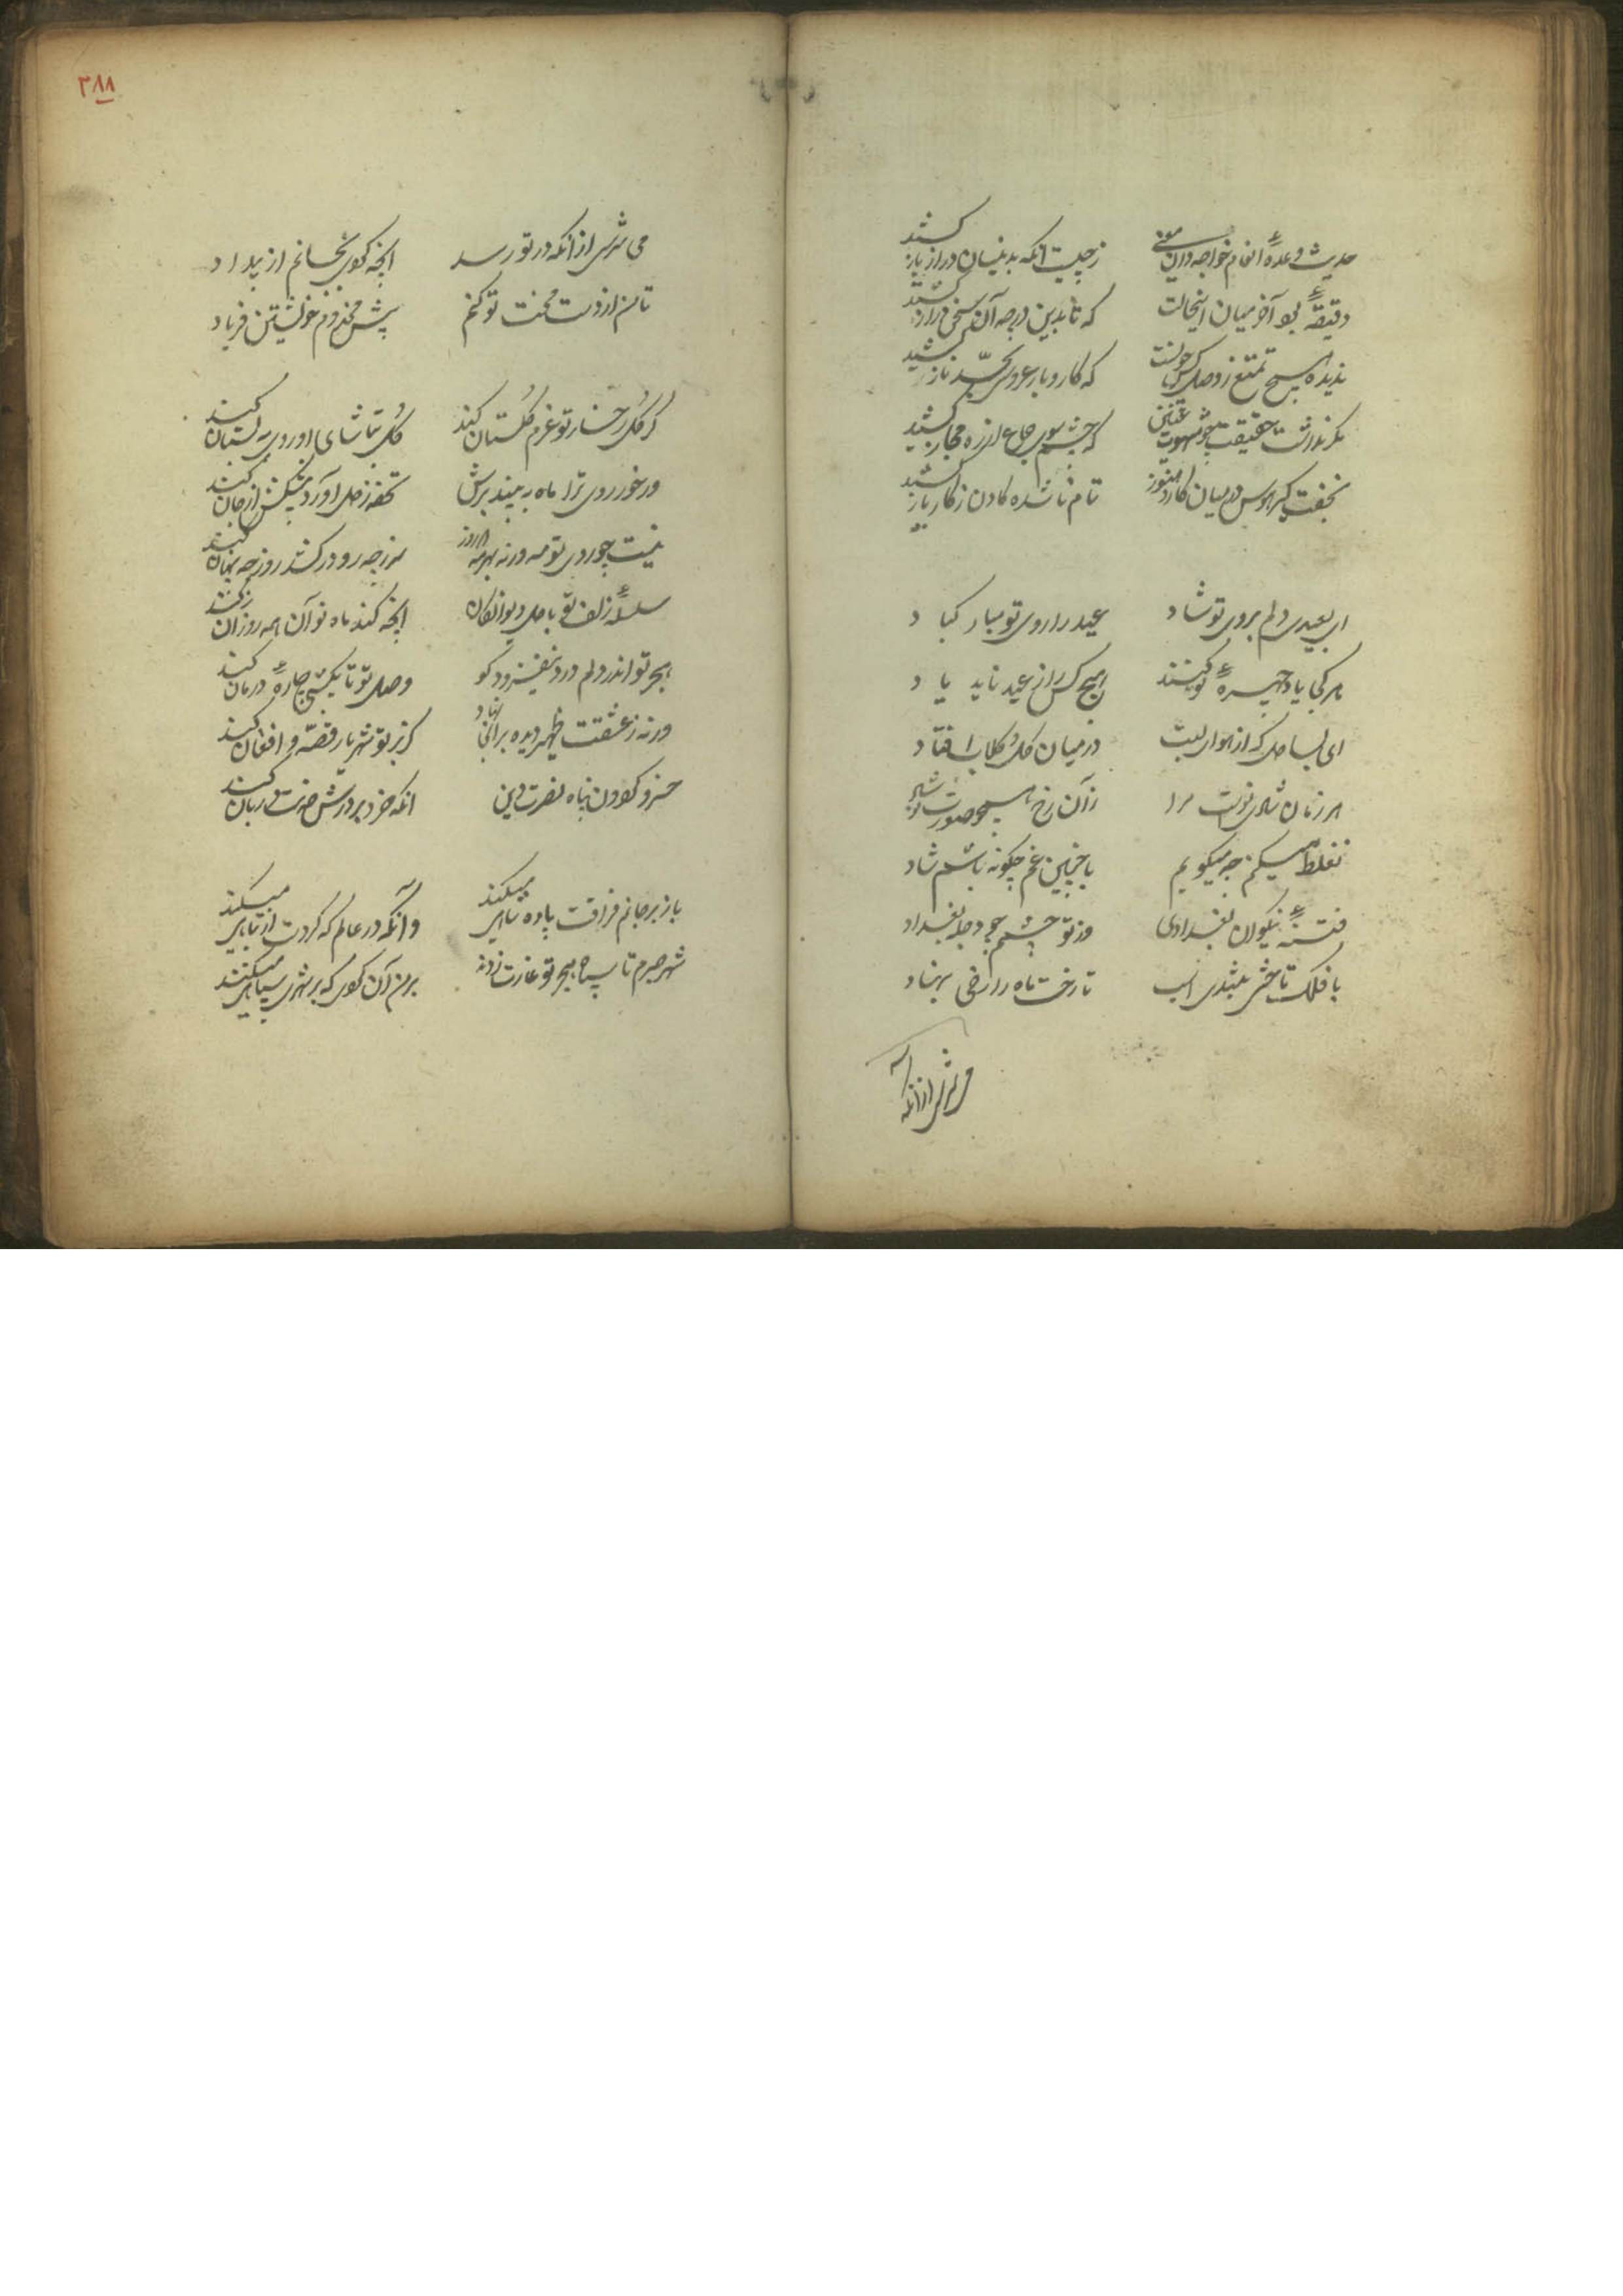 حدیث وعدهٔ انعام خواجه دانی چیست
ز چیست انکه بدینسان دراز باز کشید
دقیقهٔ بود آخر میان اینحالت
که تا بدین درجه آن سخن فراز کشید
ندیده هیچ تمتع ز وصل
که کار و بار عروسی بحد ناز کشید
مگر نداشت حقیقت چو شهوت عنین
که چشم سوی جماع از ره مجاز کشید
بخفت کیر هوس در میان کار هنوز
تمام ناشده کادن ز کار باز کشید
ای بعیدی دلم بروی تو شاد
عید را روی تو مبارک باد
هر کجا یاد چهرهٔ تو کنند
هیچ کس را ز عید ناید یاد
ای بسا دل که از هوای لبت
در میان گل و گلاب افتاد
هر زمان شادی نوست مرا
زان رخ همچو صورت
نه غلط میکنم چه میگویم
با چنین غم چگونه باشم شاد
فتنهٔ نیکوان بغدادی
وز تو چشمم چو دجلهٔ بغداد
با فلک تا خشی
تا رخت ماه را رخی بنهاد
می نترسی از آنکه
۳۸۸
می نترسی از انکه در تو رسد
انچه کوی بجانم از بیداد
تا من از دست محنت تو کنم
پیش مخدوم خویشتن فریاد
گر گل رخسار تو عزم گلستان کند
گل بتماشای او روی ببستان کند
ور خور روی ترا ماه ببیند برش
تحفه ز دل آورد پیشکش از جان کند
نیست چو روی تو مه ورنه بهر مه دو روز
سر ز چه رو درکشد روز چه پنهان کند
سلسلهٔ زلف تو با دل دیوانگان
انچه کند ماه نو آن همه روز آن کند
هجر تو اندر دلم درد بیفزود کو
وصل تو تا یکشبی چارهٔ درمان کند
ورنه ز عشقت ظهیر دیده بر آن نهاد
کز بر تو شهریار قصّه و افغان کند
خسرو گردون پناه نصرت دین
انکه خرد بر درش خدمت دربان کند
باز بر جانم فراقت پادشاهی میکند
وآنکه در عالم که کردت از تباهی میکند
شهر صبرم تا سپاه هجر تو غارت زدند
بر من آن کوی که بر شهری سپاهی میکند